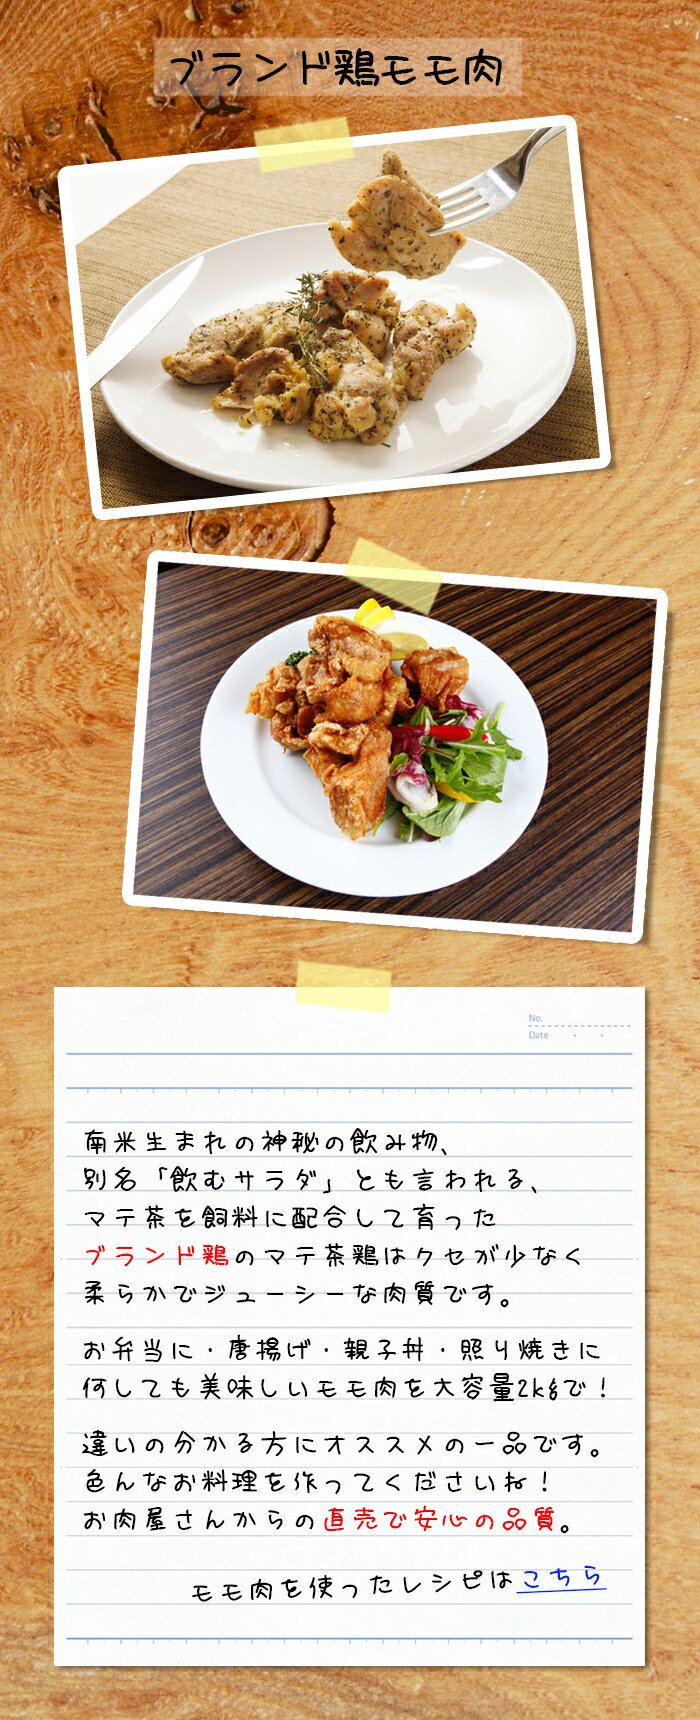 ブランド鶏モモ肉
No.
Date
南米生まれの神秘の飲み物、
別名「飲むサラダ」とも言われる、
マテ茶を飼料に配合して育った
ブランド鶏のマテ茶鶏はクセが少なく
柔らかでジューシーな肉質です。
お弁当に・唐揚げ・親子丼・照り焼きに
何しても美味しいモモ肉を大容量2kgで!
違いの分かる方にオススメの一品です。
色んなお料理を作ってくださいね!
お肉屋さんからの直売で安心の品質。
モモ肉を使ったレシピはこちら